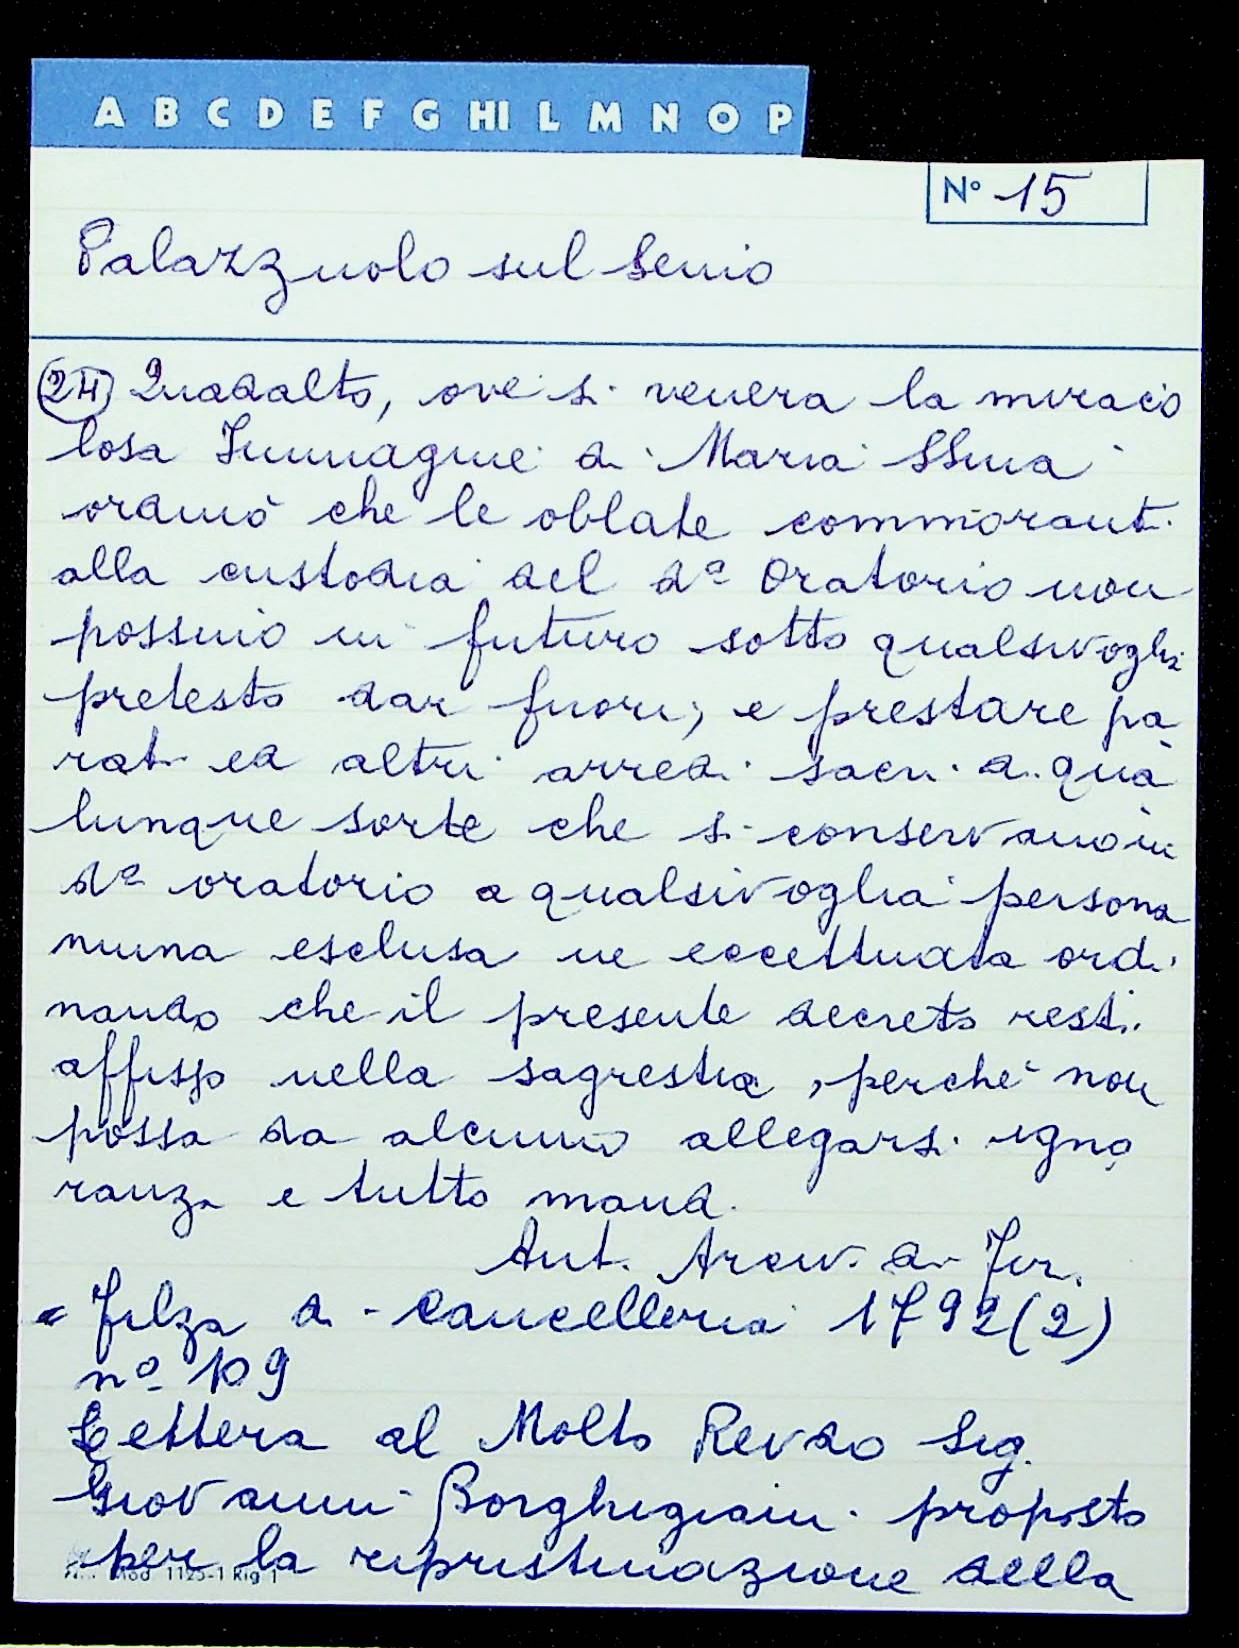 A B C D E F G HI L M N O P
N° 15
Palazzuolo sul Senio
24 Quadalto, ove si venera la miraco
losa Immagine di Maria SSma
ordinò che le oblate commoranti
alla custodia del do Oratorio non
possino in futuro sotto qualsivoglia
pretesto dar fuori, e prestare pa
rati ed altri arredi sacri di qua
lunque sorte che si conservano in
do oratorio a qualsivoglia persona
niuna esclusa ne eccettuata ordi
nando che il presente decreto resti
affisso nella sagrestia, perchè non
possa da alcuno allegarsi igno
ranza e tutto mand.
Ant. Arciv. di Fir.
= Filza di Cancelleria 1792 (2)
n° 109
Lettera al Molto Revdo Sig.
Giovanni Borghigiani proposto
per la ripristinazione della
Mod. 1125-1 Rig 1